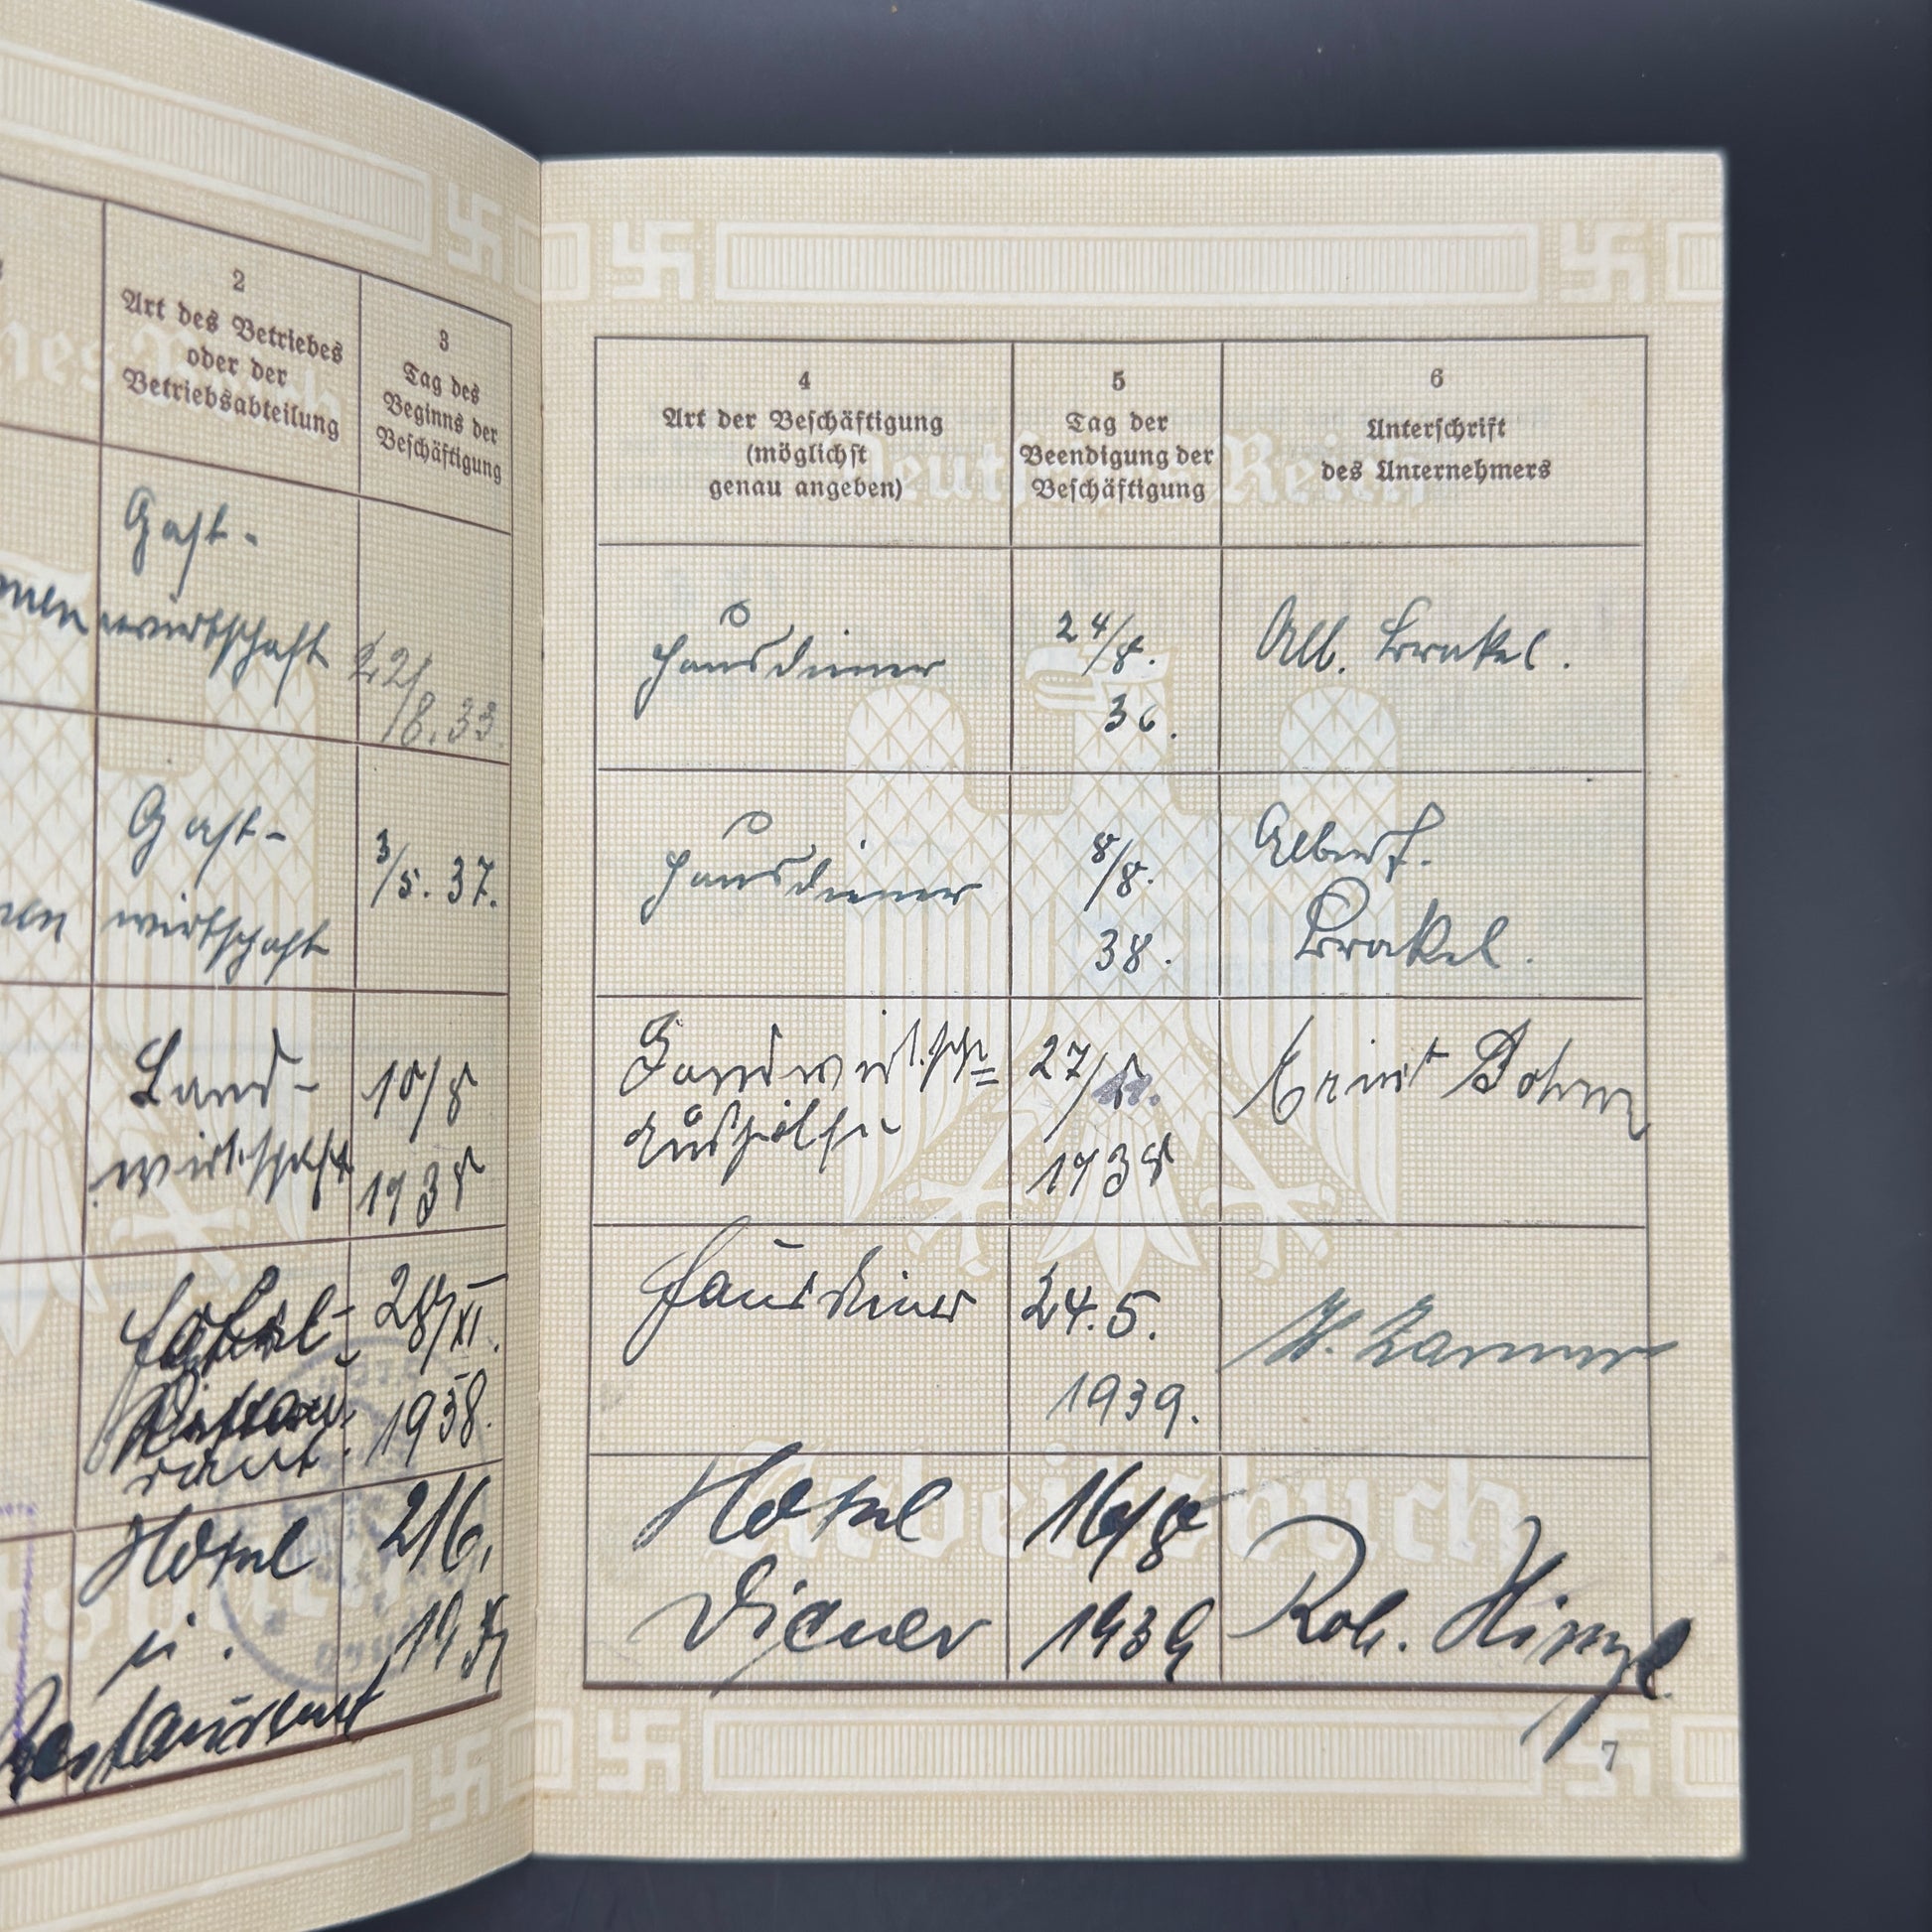 2
Art des Betriebes
oder der
Betriebsabteilung
3
Tag des
Beginns der
Beschäftigung
Gast-
wirtschaft
22/
8.33.
Gast-
wirtschaft
3/5. 37.
Land-
wirtschaft
10/8
1938
28/XI.
1938.
Hotel
u.
Restaurant
2/6.
4
Art der Beschäftigung
(möglichst
genau angeben)
5
Tag der
Beendigung der
Beschäftigung
6
Unterschrift
des Unternehmers
Hausdiener
24/8.
36.
Alb. Brakel.
Hausdiener
8/8.
38.
Albert.
Brakel.
Landwirtsch=
Aushilfe
27/
1938
Ernst Bohm
Hausdiener
24.5.
1939.
Hotel
Diener
16/8
1939
Rob.
7
Deutsches Reich
Arbeitsbuch